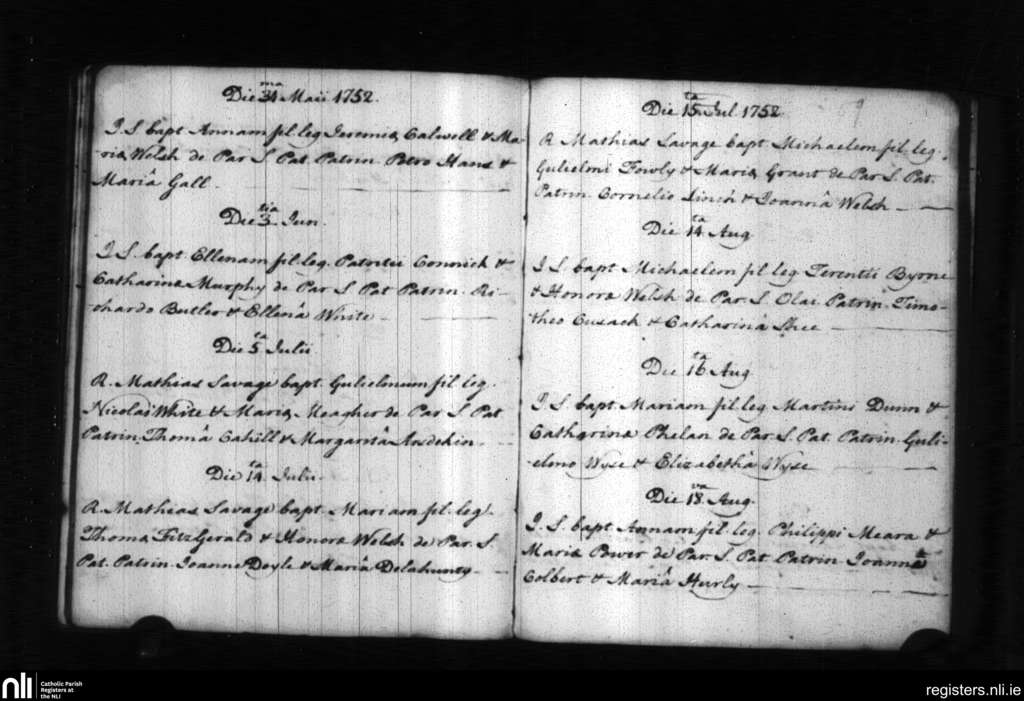 Die 31 ma Maii 1752.
J S bapt Annam fil leg Jeremiæ Calwell & Ma-
riæ Welsh de Par S Pat Patrin Petro Hans &
Mariâ Gall
Die 3 tia Jun.
J S. bapt Ellenam fil. leg. Patritii Connick &
Catharinæ Murphy de Par S Pat Patrin. Ri-
chardo Butler & Ellenâ White
Die 5 ta Julii
R. Mathias Savage bapt. Gulielmum fil leg.
Nicolai White & Mariæ Meagher de Par S Pat
Patrin. Thomâ Cahill & Margaritâ
Die 14 ta Julii.
R. Mathias Savage bapt Mariam fil. leg.
Thomæ FitzGerald & Honoræ Welsh de Par. S.
Pat. Patrin. Joanne Doyle & Mariâ Delahunty
Die 15 ta Jul 1752
R Mathias Savage bapt Michaelem fil leg.
Gulielmi Fowly & Mariæ Grant de Par S. Pat.
Patrin Cornelio Linch & Joannâ Welsh
Die 14 ta Aug
J S bapt Michaelem fil leg Terentii Byrne
& Honoræ Welsh de Par. S. Olai. Patrin. Timo-
theo Cusack & Catharinâ Shee
Die 16 ta Aug
J. S. bapt Mariam fil leg Martini Dunn &
Catharinæ Phelan de Par. S. Pat. Patrin Guli-
elmo Wyse & Elizabethâ Wyse
Die 18 va Aug.
J. S. bapt Annam fil leg. Philippi Meara &
Mariæ Power de Par. S. Pat Patrin Joanne
Colbert & Mariâ Hurly
nli
Catholic Parish
Registers at
the NLI
registers.nli.ie